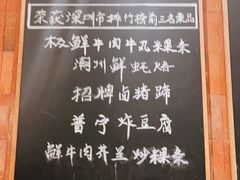 荣获深圳市排行榜前三名菜品
极鲜牛肉牛丸米粿条
潮州鲜蚝烙
招牌卤猪蹄
普宁炸豆腐
鲜牛肉芥兰炒粿条